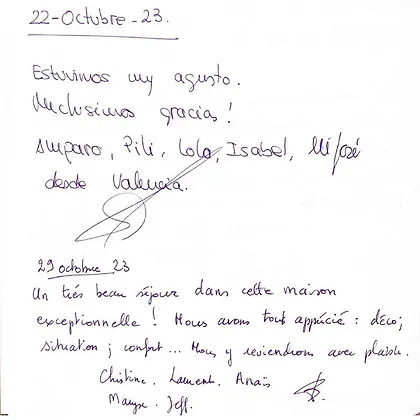 22-Octubre-23.
Estuvimos muy agusto.
Muchisimas gracias!
Amparo, Pili, Lola, Isabel, Mª José
desde Valencia.
29 octobre 23
Un très beau séjour dans cette maison
exceptionnelle ! Nous avons tout apprécié : déco,
situation, confort ... Nous y reviendrons avec plaisir.
Christine. Laurent. Anaïs
Maryse. Jeff.